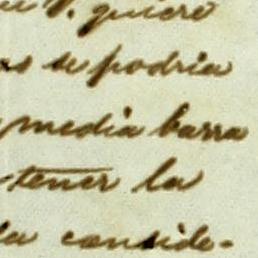 V. quiere
se podria
media barra
tener la
la conside-